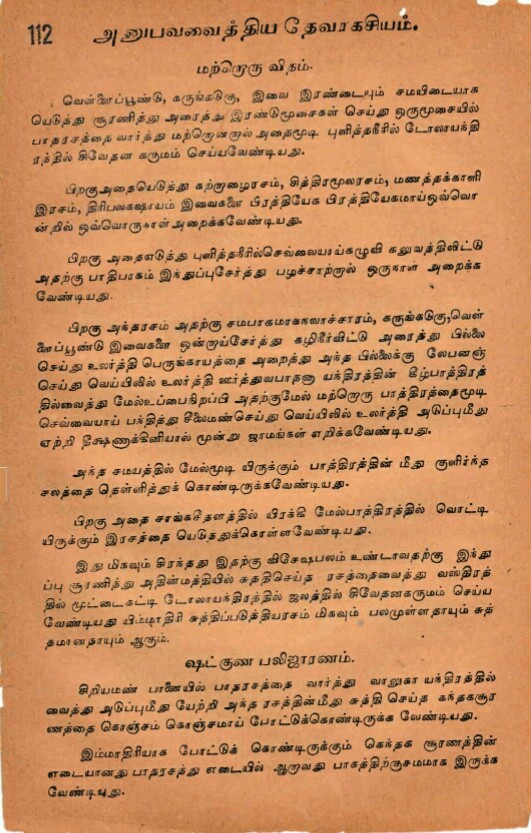 112 அனுபவவைத்திய தேவரகசியம்.
மற்றொரு விதம்.
வெள்ளைப்பூண்டு, கருங்கடுகு, இவை இரண்டையும் சமயிடையாக
யெடுத்து சூரணித்து அரைத்து இரண்டுமூசைகள் செய்து ஒருமூசையில்
பாதரசத்தை வார்த்து மற்றொன்றால் அதைமூடி புளித்தநீரில் டோலாயந்தி
ரத்தில் சிவேதன கருமம் செய்யவேண்டியது.
பிறகுஅதையெடுத்து கற்றாழைரசம், சித்திரமூலரசம், மணத்தக்காளி
இரசம், திரிபலகஷாயம் இவைகளை பிரத்தியேக பிரத்தியேகமாய்ஒவ்வொ
ன்றில் ஒவ்வொருநாள்அறைக்கவேண்டியது.
பிறகு அதைஎடுத்து புளித்தநீரில்செவ்வையாய்கழுவி கலுவத்திலிட்டு
அதற்கு பாதிபாகம் இந்துப்புசேர்த்து பழச்சாற்றால் ஒருநாள் அறைக்க
வேண்டியது.
பிறகு அந்தரசம் அதற்கு சமபாகமாகநவாச்சாரம், கருங்கடுகு,வெள்
ளைப்பூண்டு இவைகளை ஒன்றாய்சேர்த்து கழிநீர்விட்டு அரைத்து பில்லை
செய்து உலர்த்தி பெருங்காயத்தை அறைத்து அந்த பில்லைக்கு லேபனஞ்
செய்து வெய்யிலில் உலர்த்தி ஊர்த்துவபாதனா யந்திரத்தின் கீழ்பாத்திரத்
தில்வைத்து மேல்உப்பைநிறப்பி அதற்குமேல் மற்றொரு பாத்திரத்தைமூடி
செவ்வையாய் பந்தித்து சீலைமண்செய்து வெய்யிலில் உலர்த்தி அடுப்புமீது
ஏற்றி தீக்ஷணாக்கினியால் மூன்று ஜாமங்கள் எறிக்கவேண்டியது.
அந்த சமயத்தில் மேல்மூடி யிருக்கும் பாத்திரத்தின் மீது குளிர்ந்த
சலத்தை தெள்ளித்துக் கொண்டிருக்கவேண்டியது.
பிறகு அதை சாங்கசீதளத்தில் யிரக்கி மேல்பாத்திரத்தில் வொட்டி
யிருக்கும் இரசத்தை யெடுத்துக்கொள்ளவேண்டியது.
இது மிகவும் சிரந்தது இதற்கு விசேஷபலம் உண்டாவதற்கு இந்து
ப்பு சூரணித்து அதின்மத்தியில் சுத்திசெய்த ரசத்தைவைத்து வஸ்திரத்
தில் மூட்டைகட்டி டோலாயந்திரத்தில் ஜலத்தில் சிவேதனகருமம் செய்ய
வேண்டியது யிம்மாதிரி சுத்திப்படுத்தியரசம் மிகவும் பலமுள்ளதாயும் சுத்
தமானதாயும் ஆகும்.
ஷட்குண பலிஜாரணம்.
சிறியமண் பானையில் பாதரசத்தை வார்த்து வாலுகா யந்திரத்தில்
வைத்து அடுப்புமீது யேற்றி அந்த ரசத்தின்மீது சுத்தி செய்த கந்தகசூர
ணத்தை கொஞ்சம் கொஞ்சமாய் போட்டுக்கொண்டிருக்க வேண்டியது.
இம்மாதிரியாக போட்டுக் கொண்டிருக்கும் கெந்தக சூரணத்தின்
எடையானது பாதரசத்து எடையில் ஆறாவது பாகத்திற்குசமமாக இருக்க
வேண்டியது.